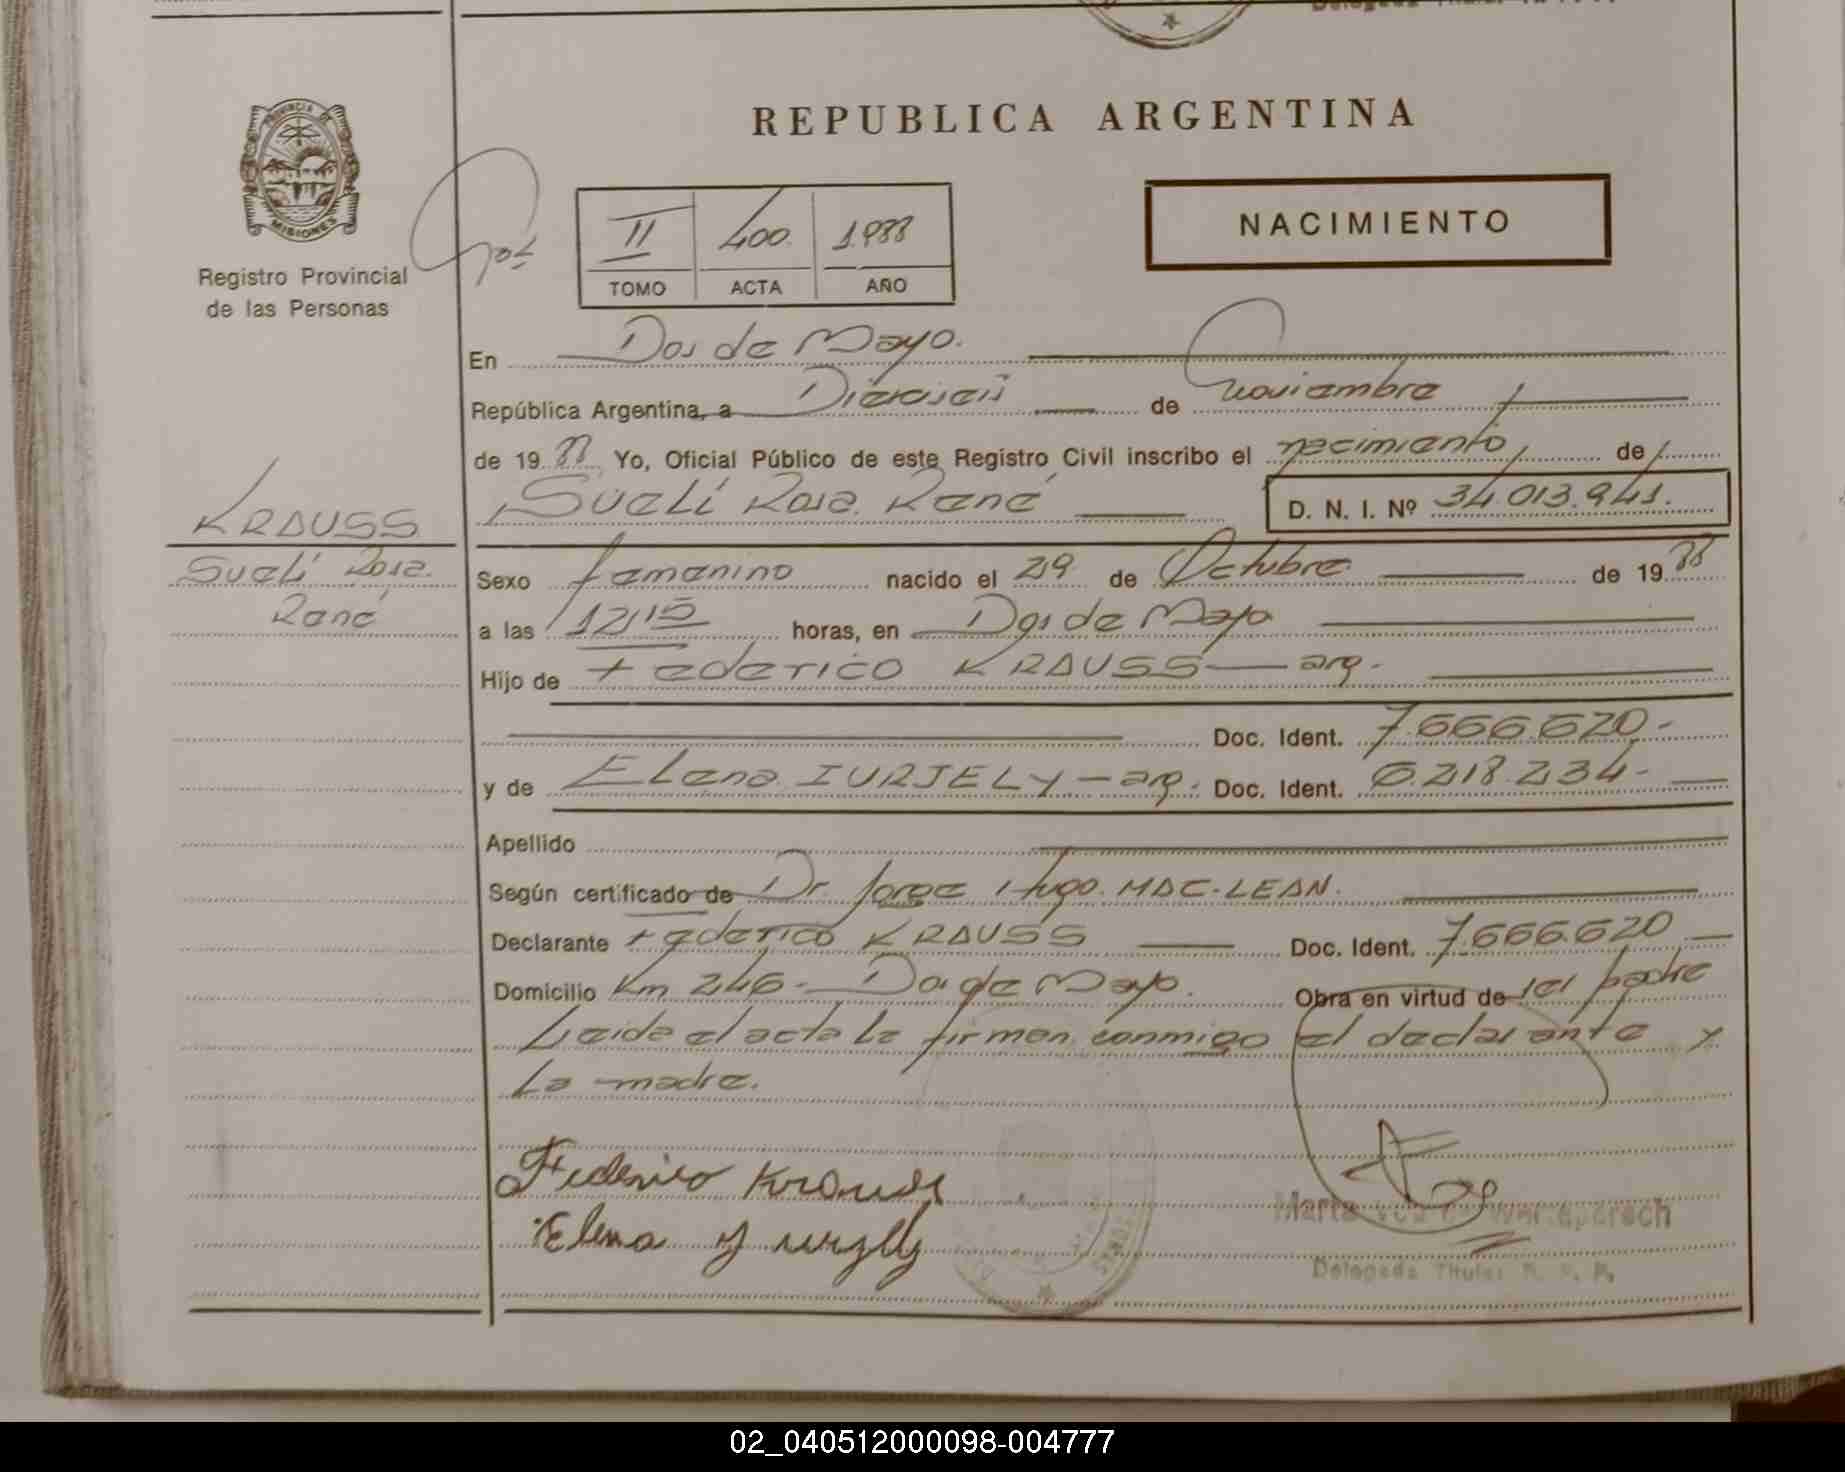 REPUBLICA ARGENTINA
PROVINCIA DE
MISIONES
Registro Provincial
de las Personas
II 400. 1.988
TOMO ACTA AÑO
NACIMIENTO
En Dos de Mayo.
República Argentina, a Dieciseis de noviembre
de 19 88 Yo, Oficial Público de este Registro Civil inscribo el nacimiento de
Suelí Rosa René D. N. I. Nº 34.013.941.
KRAUSS
Suelí Rosa
René
Sexo femenino nacido el 29 de Octubre de 19 88
a las 12,15 horas, en Dos de Mayo
Hijo de Federico KRAUSS — arg.
Doc. Ident. 7.666.620.-
y de Elena IURJELY — arg. Doc. Ident. 6.218.234.-
Apellido
Según certificado de Dr. Jorge Hugo MAC-LEAN.
Declarante Federico KRAUSS Doc. Ident. 7.666.620
Domicilio Km 246 - Dos de Mayo. Obra en virtud de ser padre
Leida el acta la firman conmigo el declarante y
la madre.
Federico Krauss
Elena
Marta
Delegada Titular R. P. P.
02_040512000098-004777